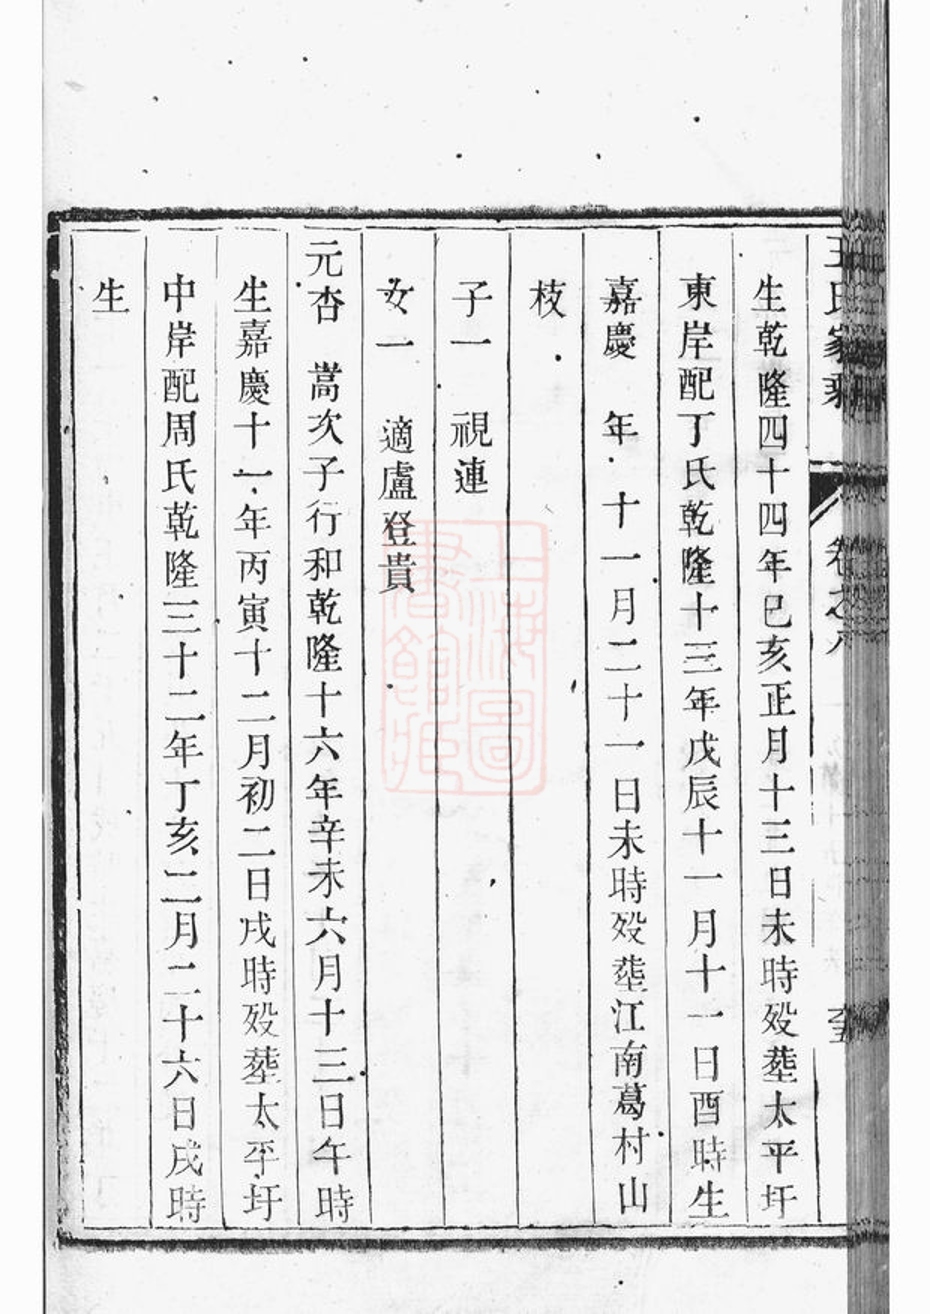 王氏家乘 卷之八
生乾隆四十四年己亥正月十三日未時歿塟太平圩
東岸配丁氏乾隆十三年戊辰十一月十一日酉時生
嘉慶 年 十一月二十一日未時歿塟江南葛村山
枝
子一 視連
女一 適盧登貴
元杏 嵩次子行和乾隆十六年辛未六月十三日午時
生嘉慶十一年丙寅十二月初二日戌時歿塟太平圩
中岸配周氏乾隆三十二年丁亥二月二十六日戌時
生
上海圖書館藏